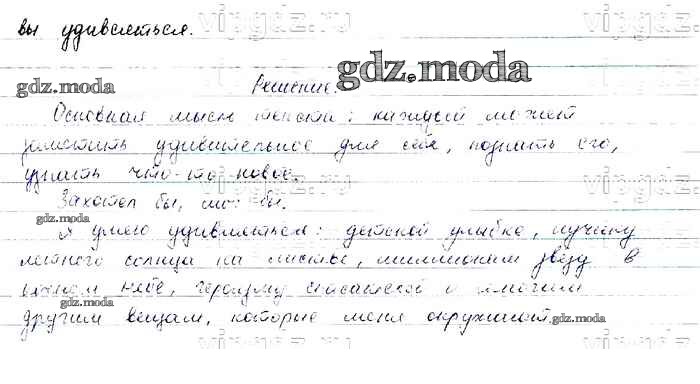 вы удивляться.
Решение.
Основная мысль текста: каждый может
заметить удивительное для себя, познать его,
узнать что-то новое.
Захотел бы, мог бы.
Я умею удивляться: детской улыбке, лучику
летнего солнца на листве, миллионам звёзд в
ночном небе, героизму спасателей и многим
другим вещам, которые меня окружают.
gdz.moda
gdz.moda
gdz.moda
gdz.moda
gdz.moda
vipgdz.ru
vipgdz.ru
vipgdz.ru
vipgdz.ru